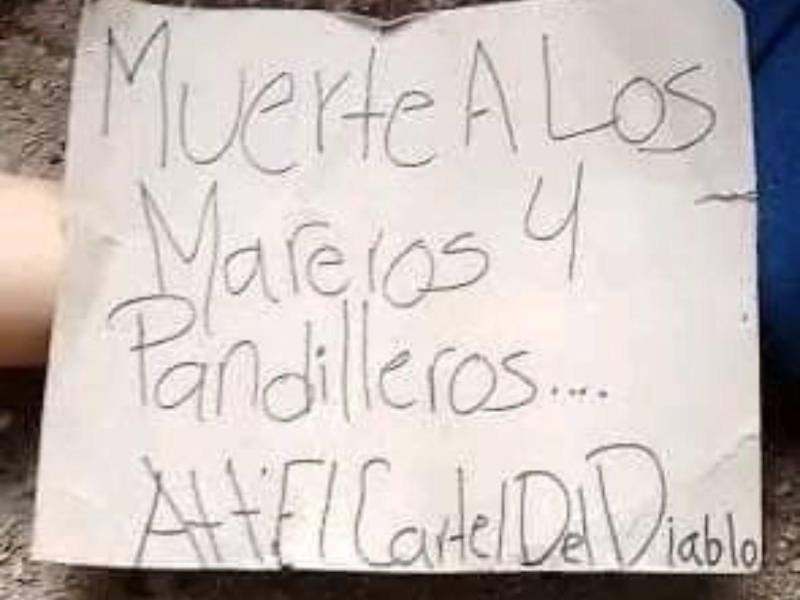 Muerte A Los
Mareros y
Pandilleros....
Att: El Cartel Del Diablo